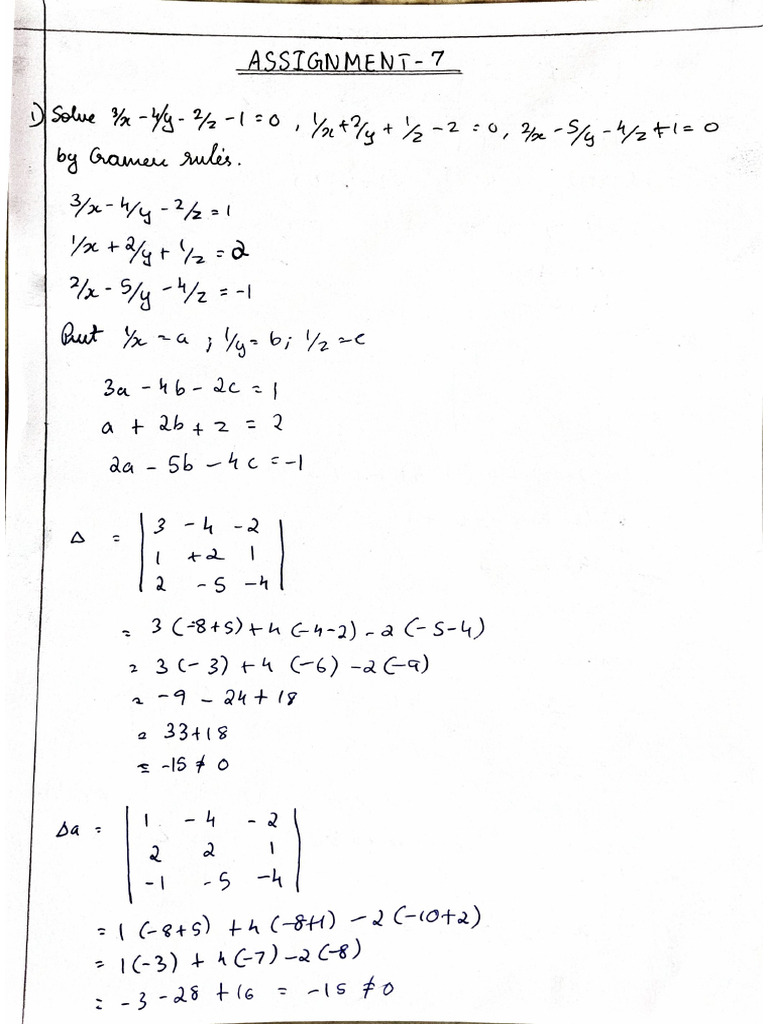 ASSIGNMENT-7
1) Solve 3/x - 4/y - 2/z - 1 = 0 , 1/x + 2/y + 1/z - 2 = 0, 2/x - 5/y - 4/z + 1 = 0
by Cramer rules.
3/x - 4/y - 2/z = 1
1/x + 2/y + 1/z = 2
2/x - 5/y - 4/z = -1
Put 1/x = a ; 1/y = b ; 1/z = c
3a - 4b - 2c = 1
a + 2b + z = 2
2a - 5b - 4c = -1
Δ = | 3 -4 -2 |
| 1 +2 1 |
| 2 -5 -4 |
= 3 (-8+5) + 4 (-4-2) - 2 (-5-4)
= 3 (-3) + 4 (-6) - 2 (-9)
= -9 - 24 + 18
= 33+18
= -15 ≠ 0
Δa = | 1 -4 -2 |
| 2 2 1 |
| -1 -5 -4 |
= 1 (-8+5) + 4 (-8+1) - 2 (-10+2)
= 1(-3) + 4(-7) - 2(-8)
= -3 - 28 + 16 = -15 ≠ 0